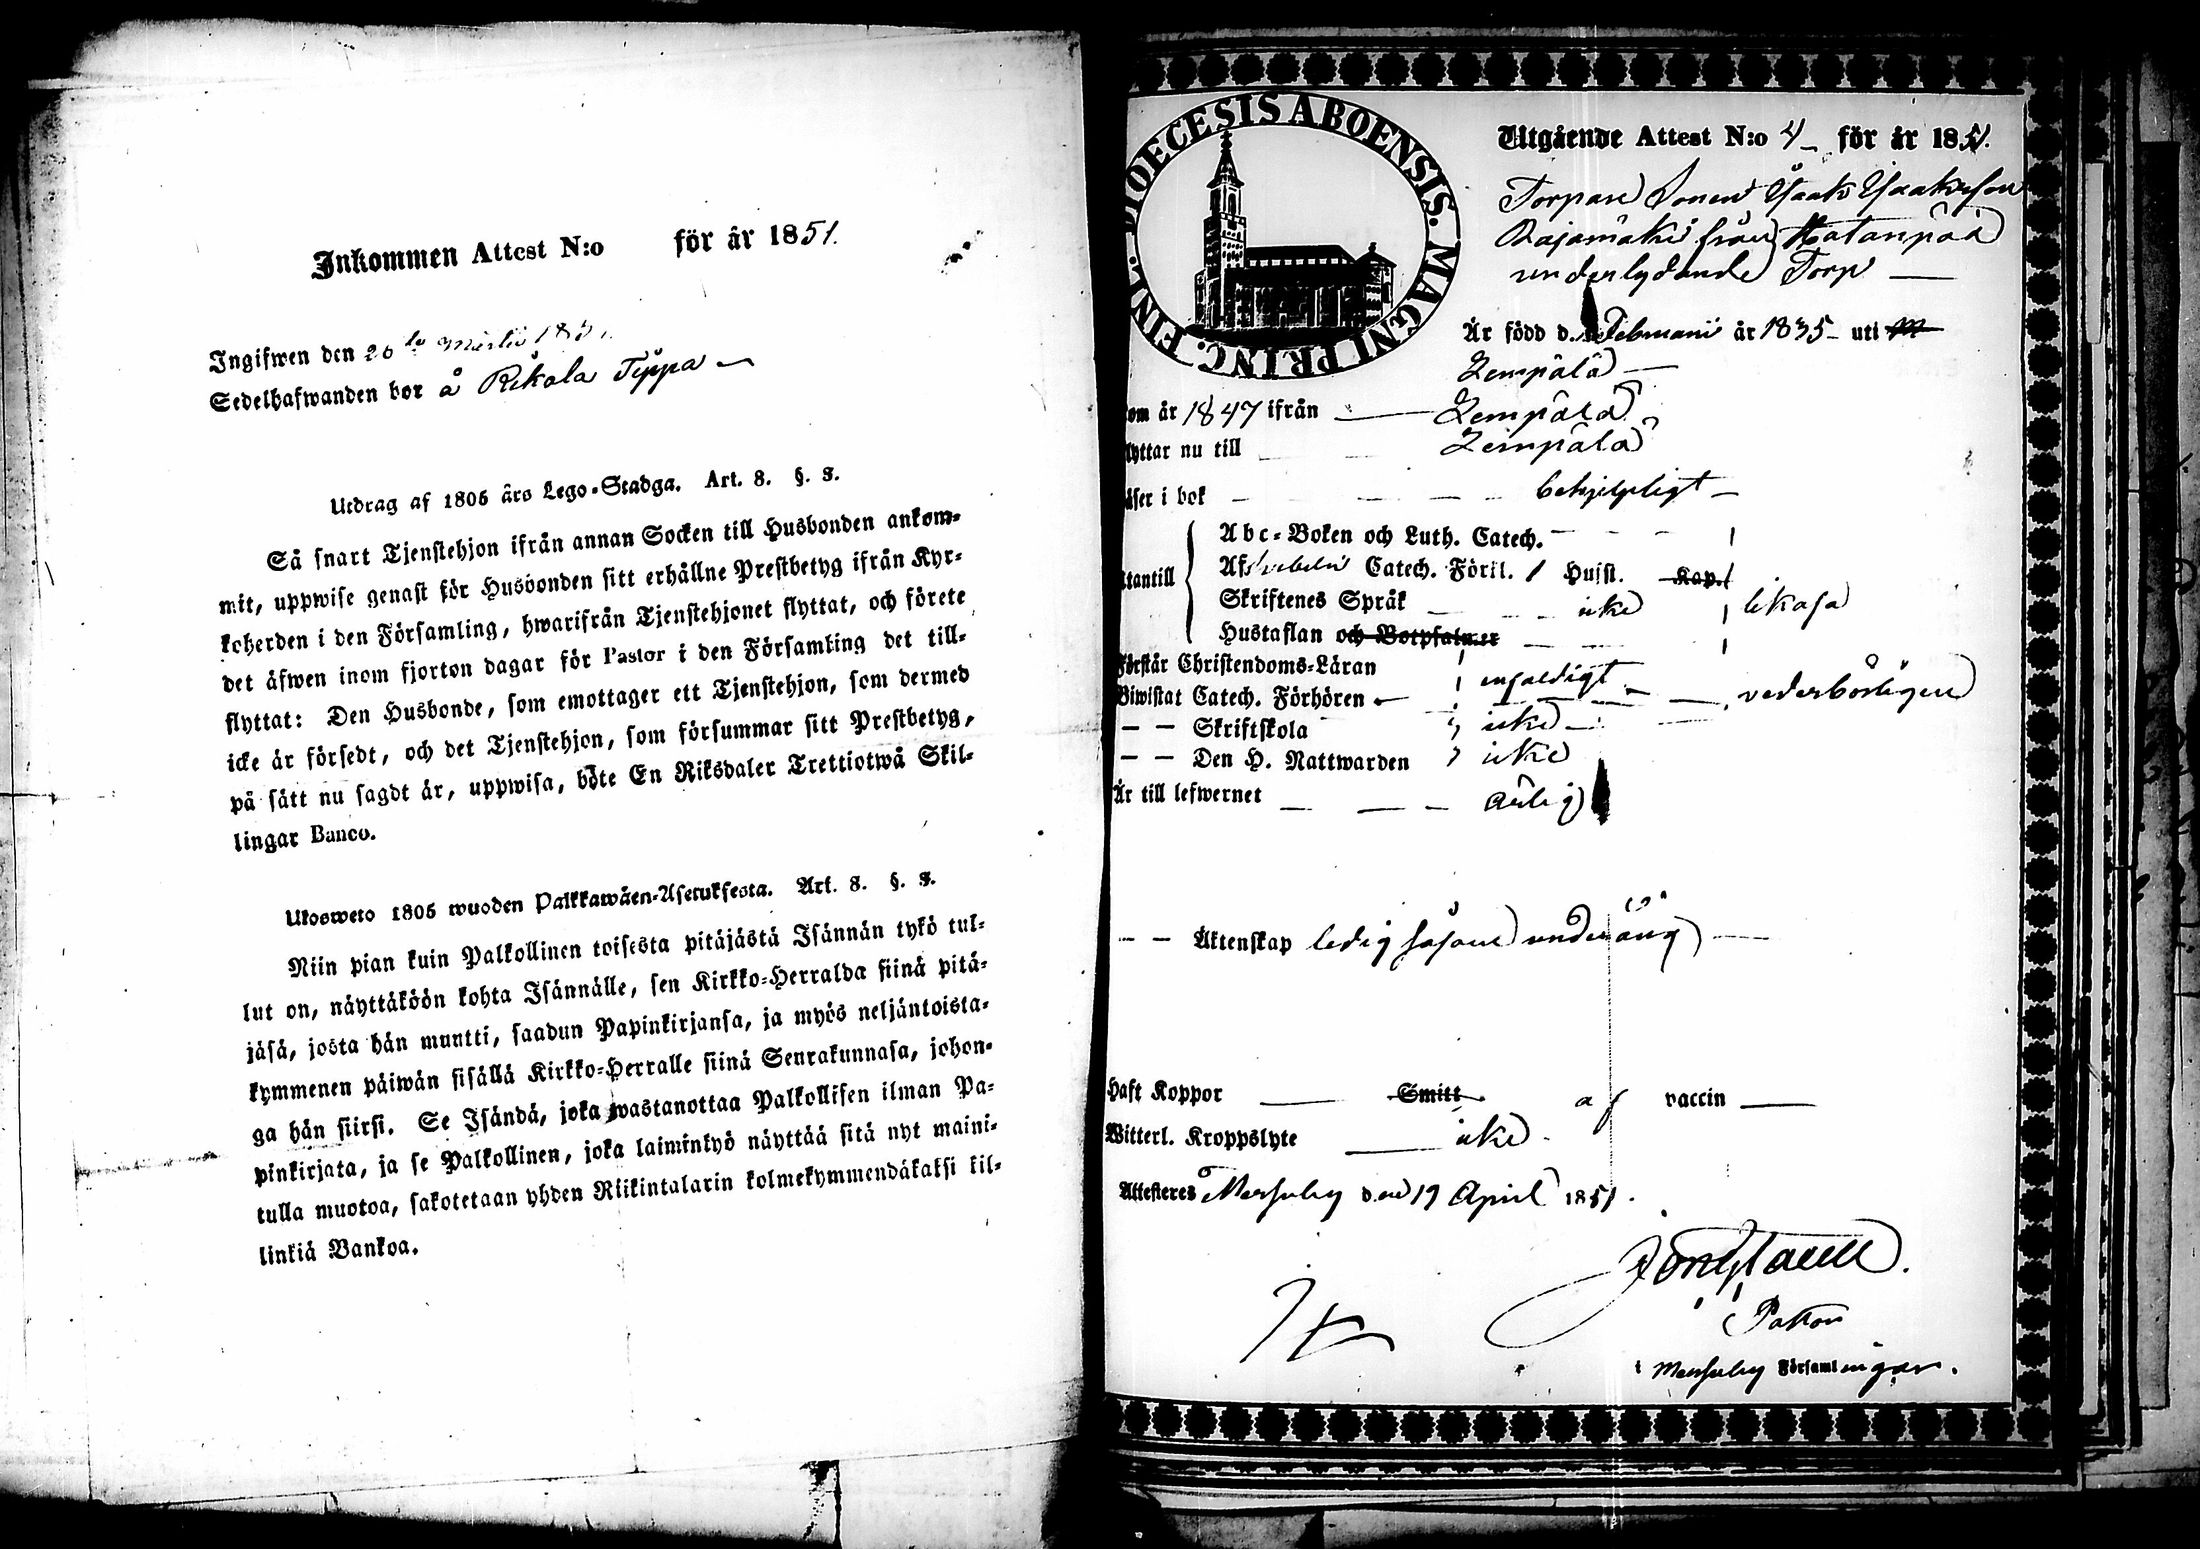 Inkommen Attest N:o för år 1851.
Ingifwen den 26de Martii 1851.
Sedelhafwanden bor å Rikala Tippa
Utdrag af 1805 års Lego-Stadga. Art. 8. §. 3.
Så snart Tjenstehjon ifrån annan Socken till Husbonden ankom-
mit, uppwise genast för Husbonden sitt erhållne Prestbetyg ifrån Kyr-
koherden i den Församling, hwarifrån Tjenstehjonet flyttat, och förete
det äfwen inom fjorton dagar för Pastor i den Församling det till-
flyttat: Den Husbonde, som emottager ett Tjenstehjon, som dermed
icke är försedt, och det Tjenstehjon, som försummar sitt Prestbetyg,
på sätt nu sagdt är, uppwisa, böte En Riksdaler Trettiotwå Skil-
lingar Banco.
Ulosweto 1805 wuoden Palkkawäen-Asetuksesta. Art. 8. §. 3.
Niin pian kuin Palkollinen toisesta pitäjästä Isännän tykö tul-
lut on, näyttäköön kohta Isännälle, sen Kirkko-Herralda siinä pitä-
jäsä, josta hän muutti, saadun Papinkirjansa, ja myös neljäntoista-
kymmenen päiwän sisällä Kirkko-Herralle siinä Seurakunnasa, johon-
ga hän siirsi. Se Isändä, joka wastanottaa Palkollisen ilman Pa-
pinkirjata, ja se Palkollinen, joka laiminlyö näyttää sitä nyt maini-
tulla muotoa, sakotetaan yhden Riikintalarin kolmekymmendäkaksi kil-
linkiä Bankoa.
DIOECESIS ABOENSIS. MAGNI PRINC. FINL.
Utgående Attest N:o 4 för år 1851.
Torpare Sonen Isaak Isaaksson
Rajamäki från Hatanpää
underlydande Torp
Är född d. Februarii år 1835 uti
Lempälä
om år 1847 ifrån Lempälä
lyttar nu till Lempälä
äser i bok behjelpligt
Abc-Boken och Luth. Catech.
Af Svebelii Catech. Förkl. / Hufst. Kap.
tantill Skriftenes Språk icke likaså
Hustaflan och Botpsalmer
Förstår Christendoms-Läran enfaldigt
Biwistat Catech. Förhören vederbörligen
— — Skriftskola icke
— — Den H. Nattwarden icke
Är till lefwernet ärlig
— — Äktenskap ledig såsom underårig
Haft Koppor Smitt af vaccin
Witterl. Kroppslyte icke
Attesteras Messuby den 19 April 1851.
Pastor
i Messuby Församlingar.